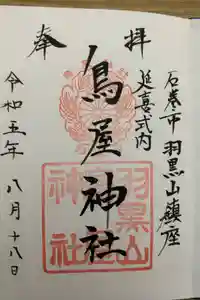 奉拝
石巻市 羽黒山鎮座
延喜式内
鳥屋神社
令和五年 八月十八日
羽黒山
神社